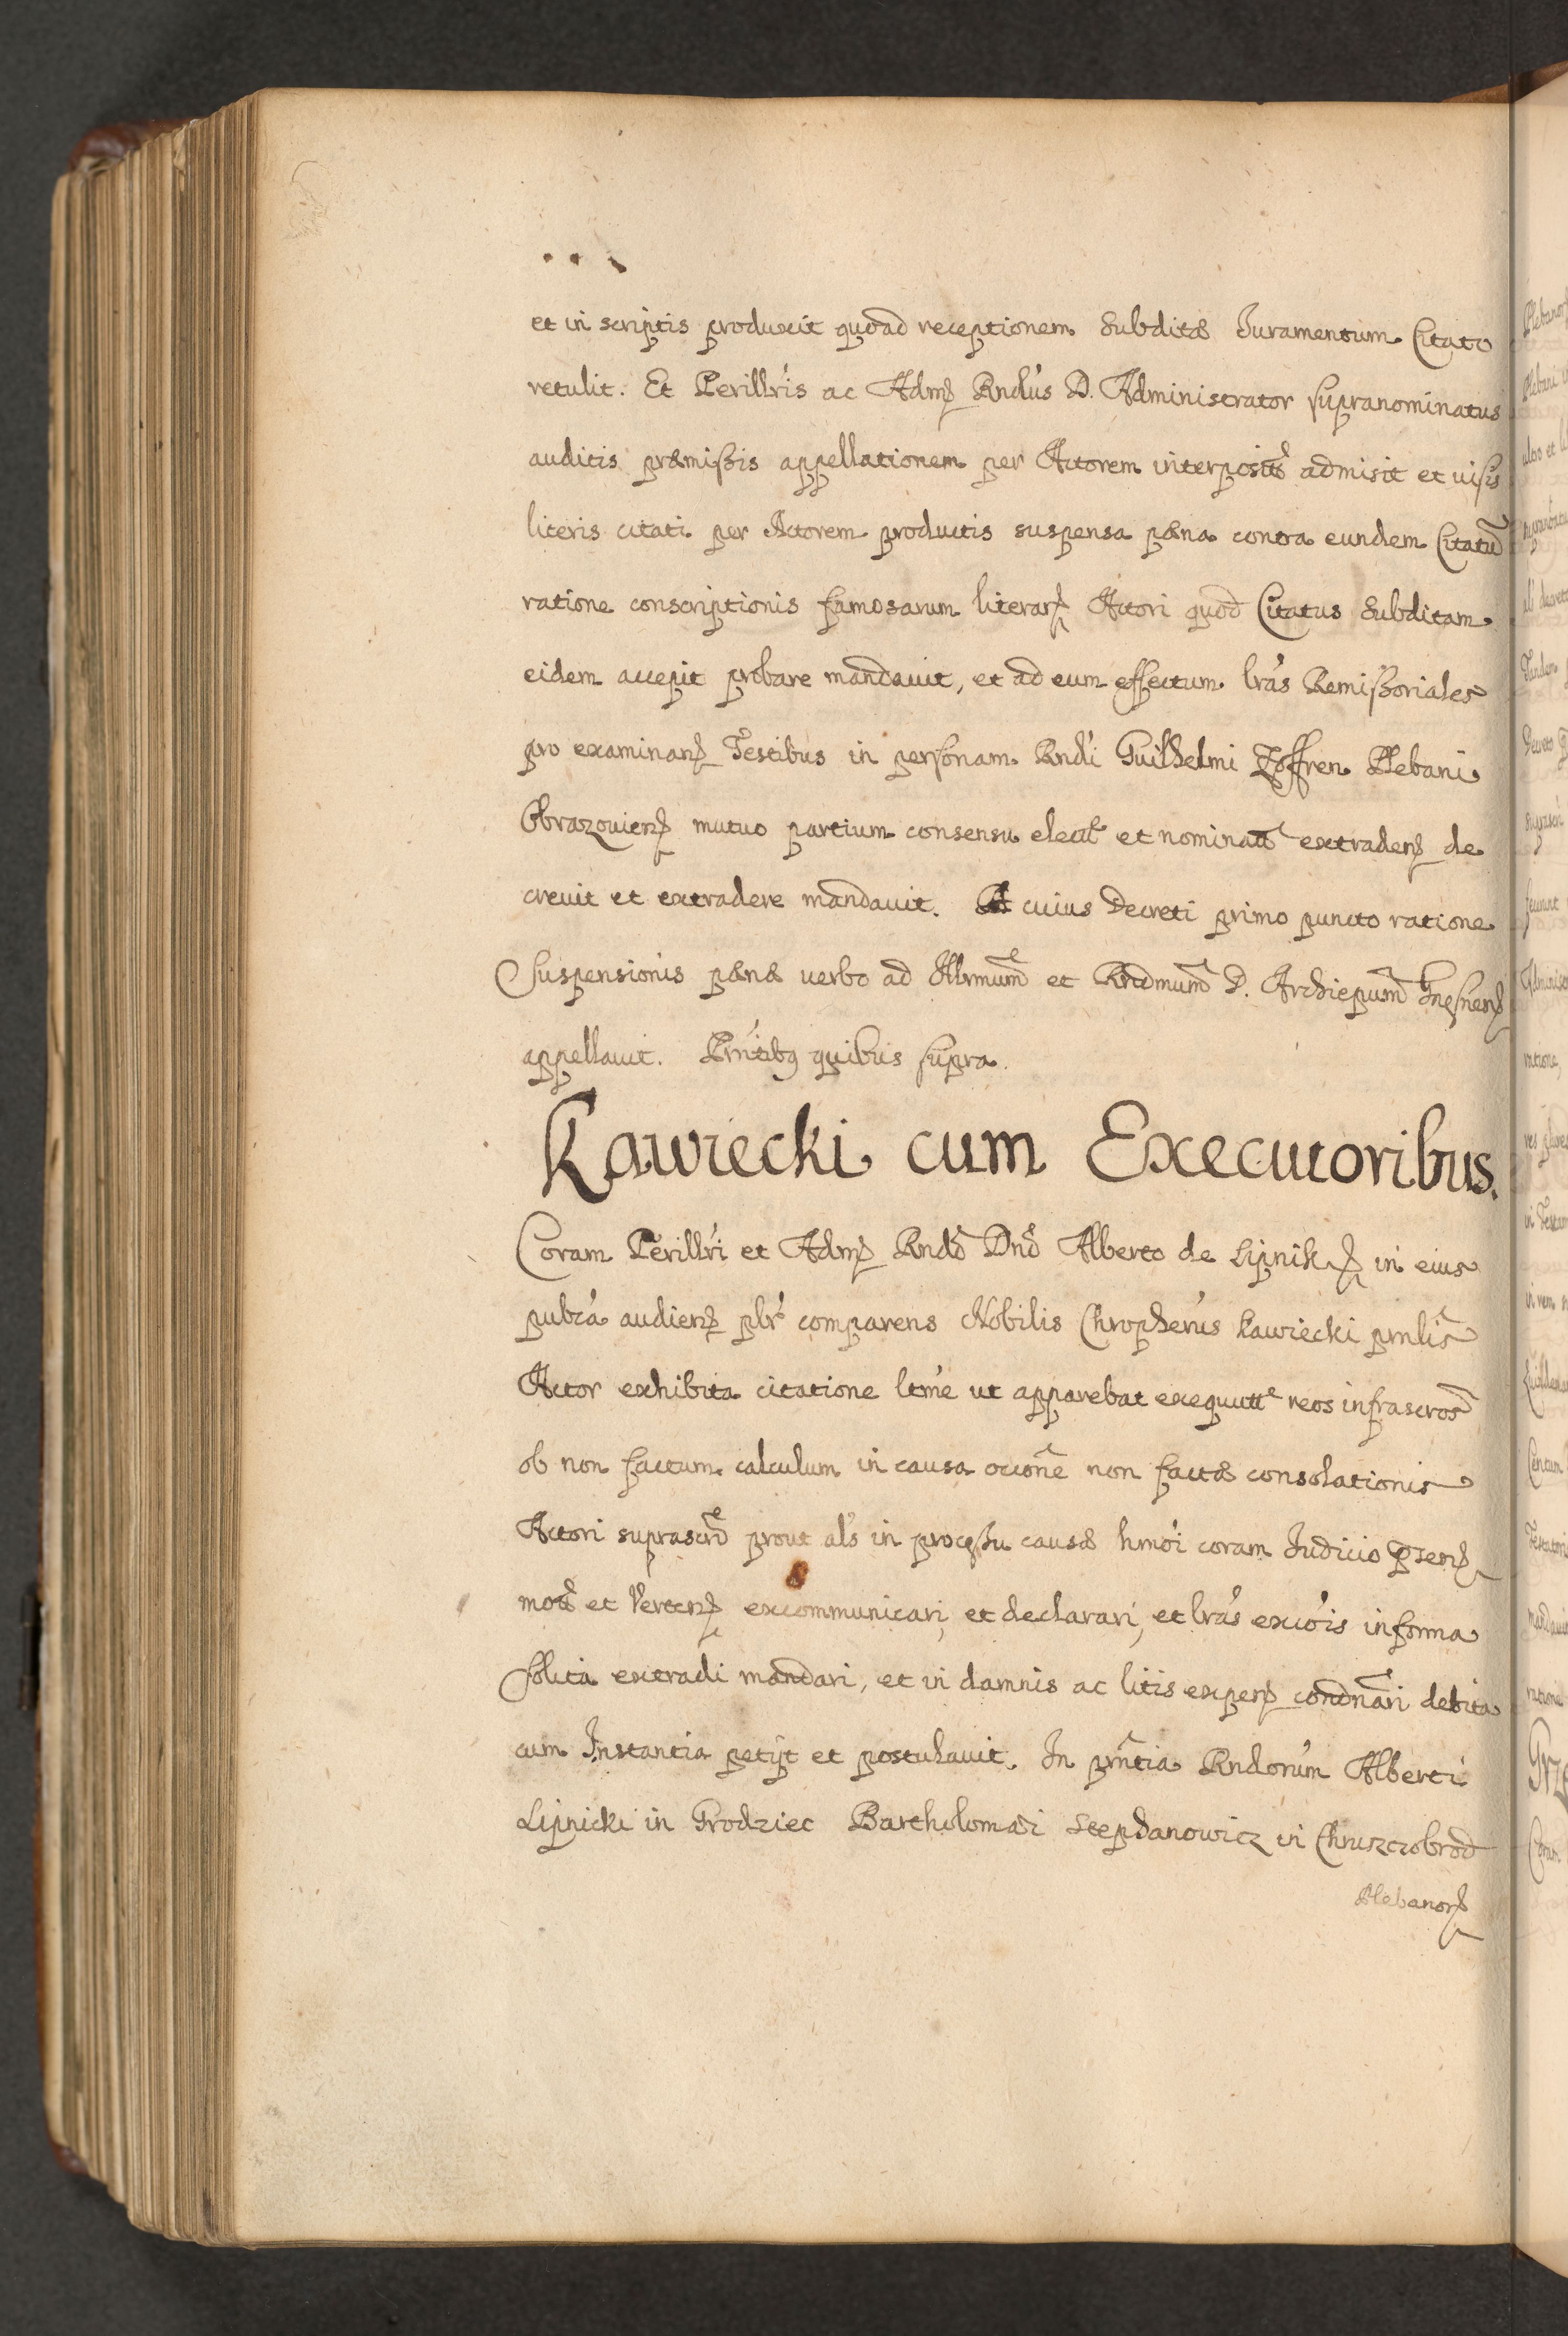 et in scriptis produxit quoad receptionem Subditæ Iuramentum Citato
retulit. Et Perillr̃is ac Adm̃ Rndus D. Administrator supranominatus
auditis præmissis appellationem per Actorem interposit̃ admisit et visis
literis citati per Actorem productis suspensa pæna contra eundem Citatũ
ratione conscriptionis famosarum literar̃ Actori quod Citatus Subditam
eidem accepit probare mandavit, et ad eum effectum lrãs Remissoriales
pro examinan̄ Testibus in personam Rndi Guilhelmi Zoffren Plebani
Obrazovien̄ mutuo partium consensu elect̃ et nominat̃ extraden̄ de
crevit et extradere mandavit. A cuius Decreti primo puncto ratione
Suspensionis pænæ verbo ad Illrmum̃ et Rndmum̃ D. Archiepum̃ Gnesnen̄
appellavit. Prñtibꝯ quibus supra.
Kawiecki cum Executoribus.
Coram Perillr̃i et Adm̃ Rndo Dño Alberto de Lipnik in eius
pubca audien̄ plr̃ comparens Nobilis Chropherus Kawiecki prnlis̃
Actor exhibita citatione ltmẽ ut apparebat exequutt̃ reos infrascros̃
ob non factum calculum in causa occonẽ non factæ consolationis
Actori suprascr̃ prout als̃ in processu causæ hmoĩ coram Iudicio p̃sen̄
mot̃ et verten̄ excommunicari, et declarari, et lrãs excoĩs in forma
solita extradi mandari, et in damnis ac litis expen̄ condnãri debita
cum Instantia petijt et postulavit. In prñtia Rndorum Alberti
Lipnicki in Grodziec Bartholomæi Stephanowicz in Chruszczobrod
Plebanor̃